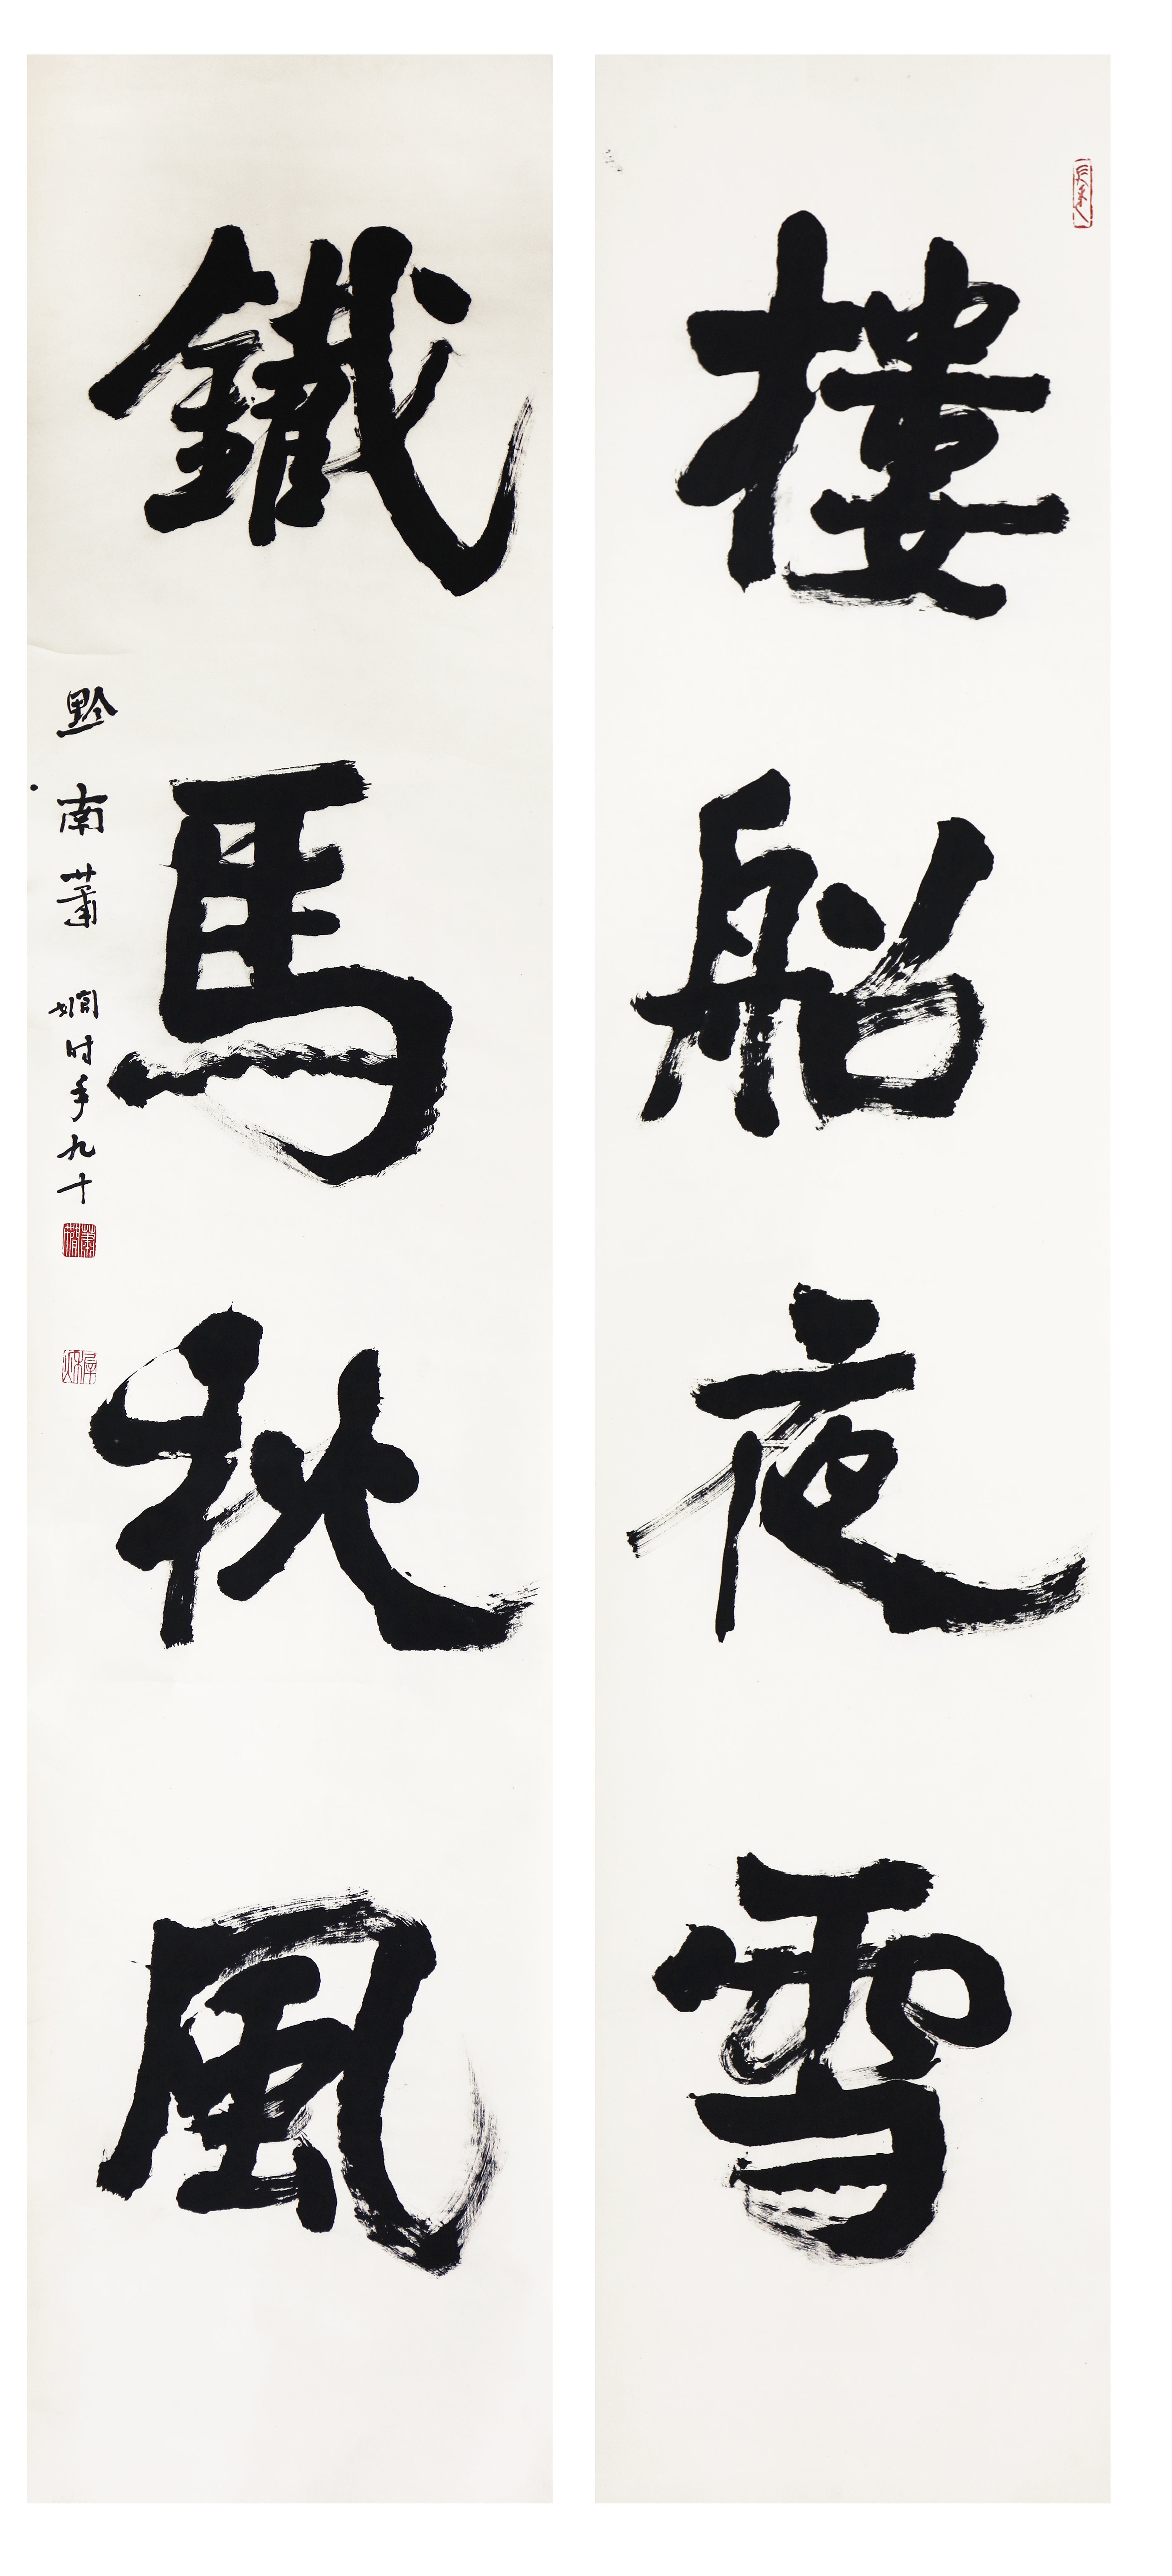 樓船夜雪
鐵馬秋風
黔南蕭嫺时年九十